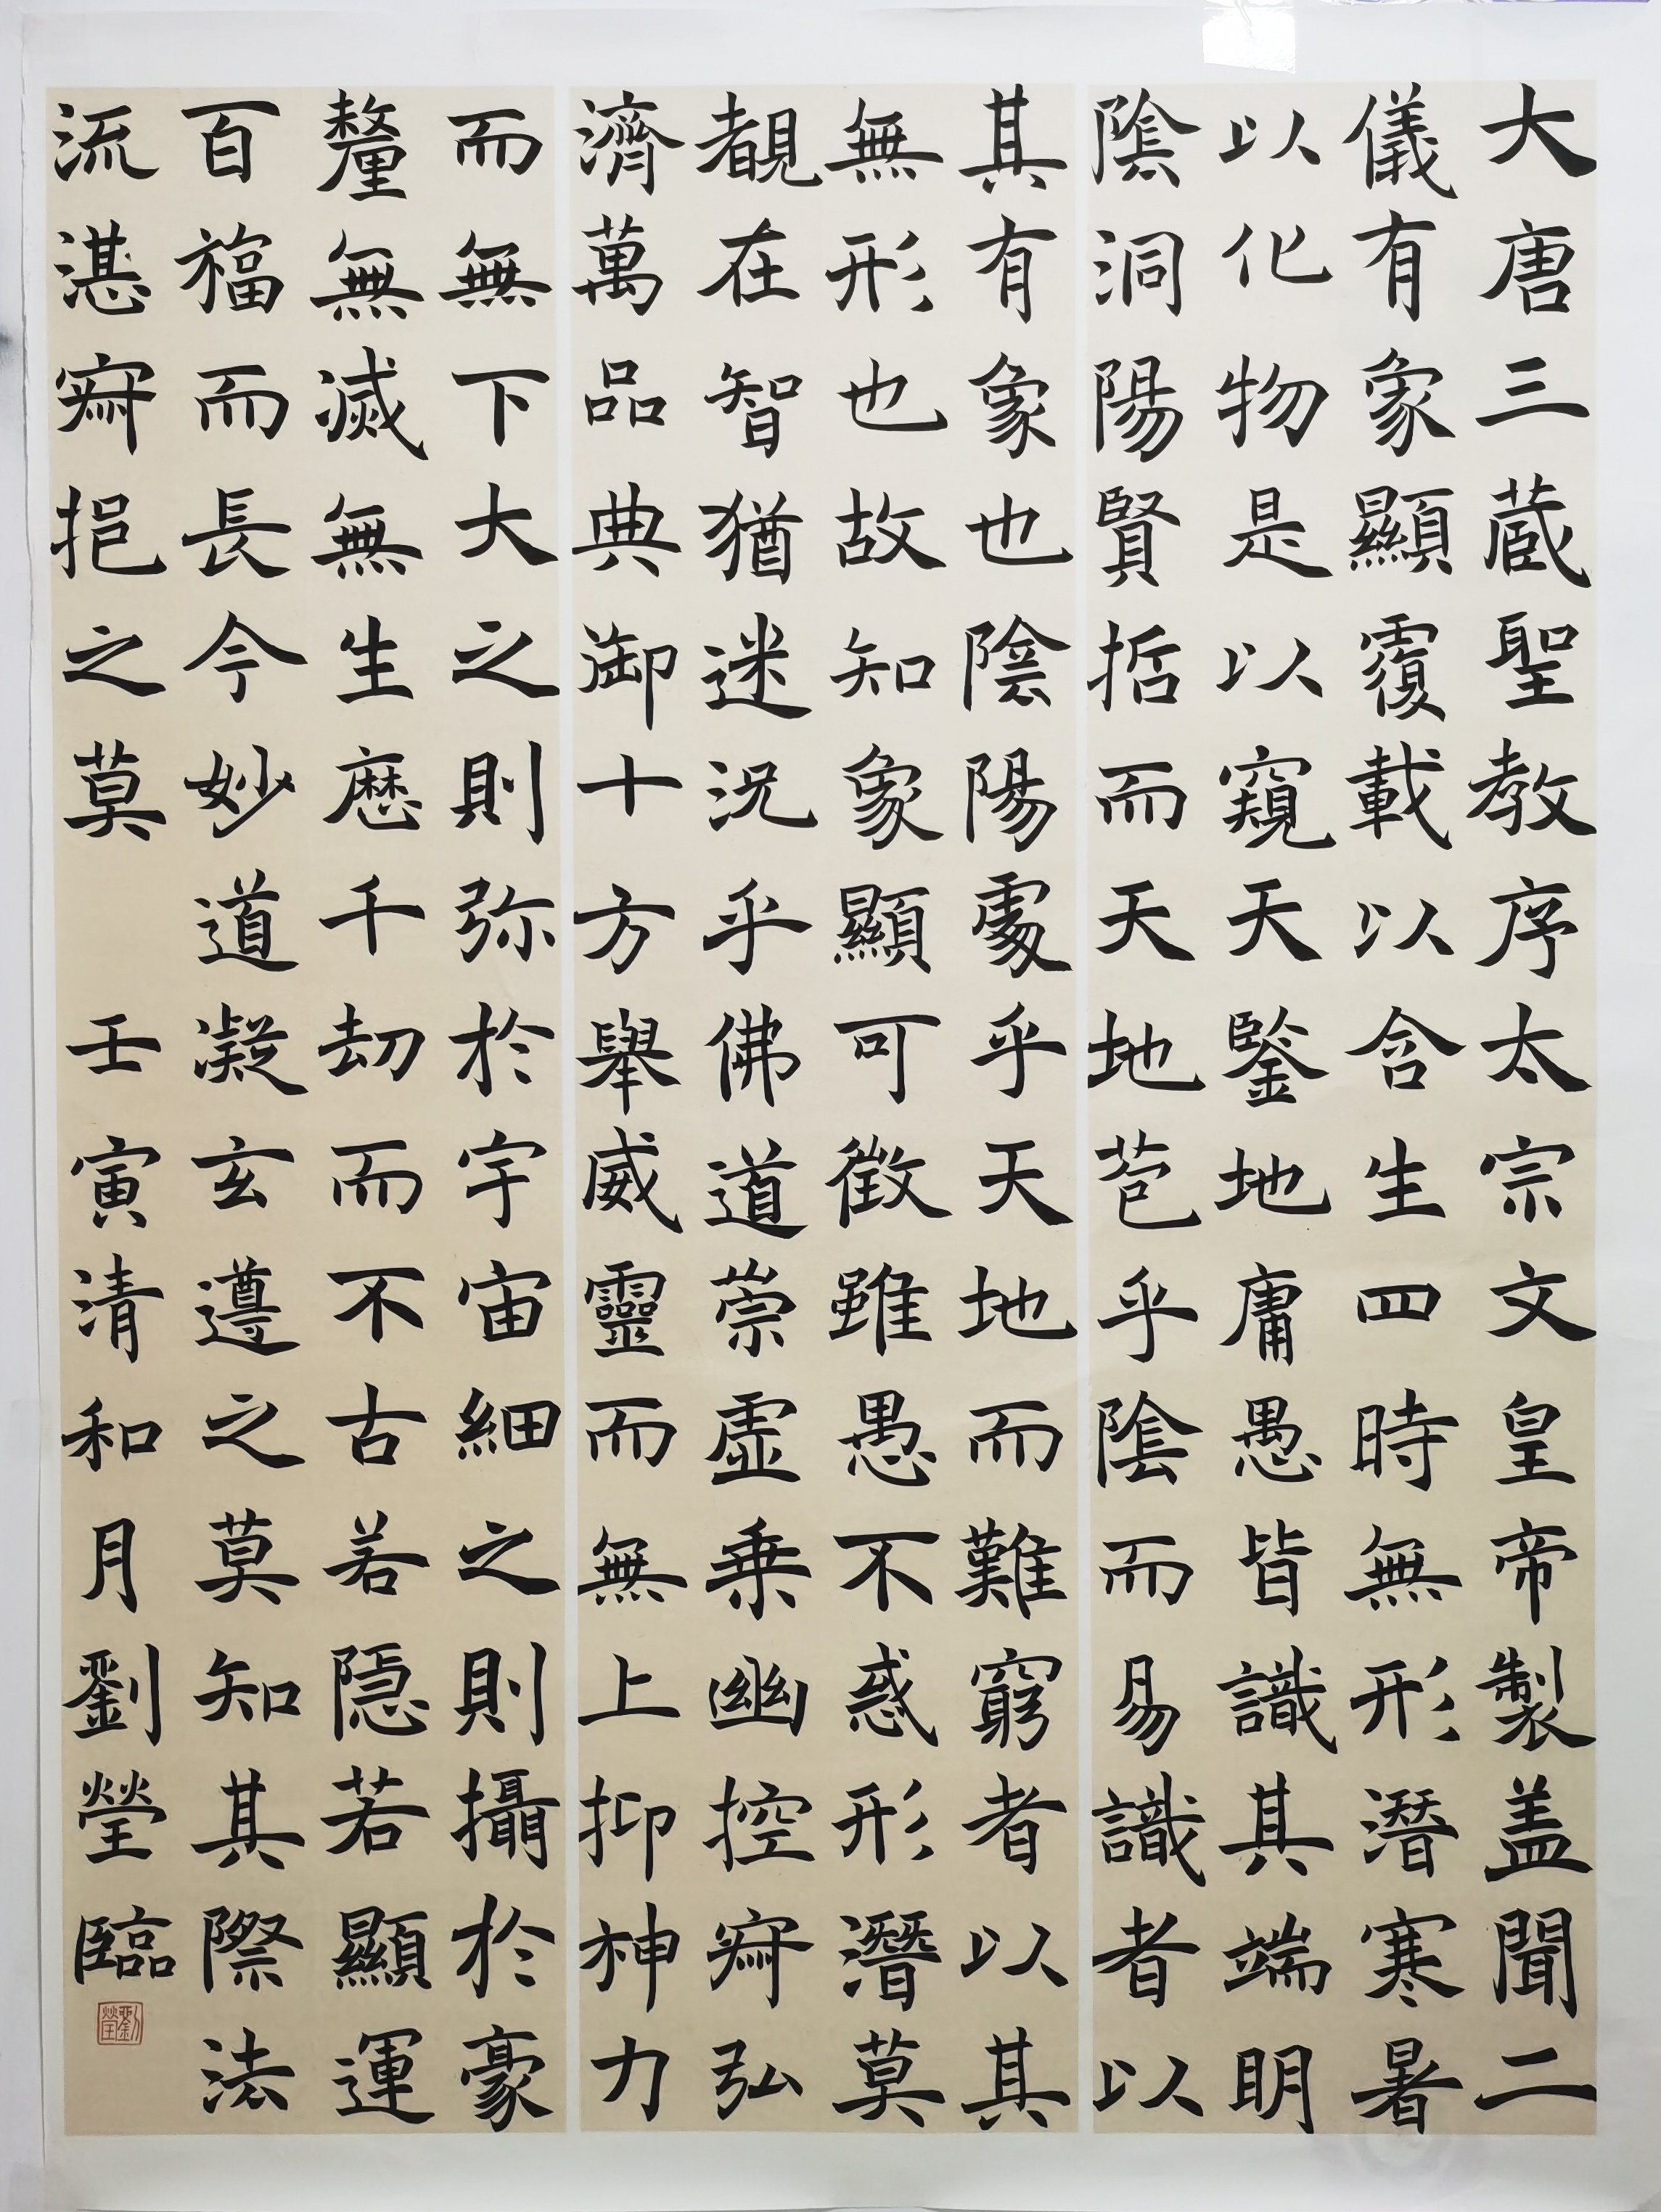 大唐三蔵聖教序太宗文皇帝製盖聞二
儀有象顯覆載以含生四時無形潛寒暑
以化物是以窺天鑒地庸愚皆識其端明
陰洞陽賢哲而天地苞乎陰而易識者以
其有象也陰陽處乎天地而難窮者以其
無形也故知象顯可徵雖愚不惑形潛莫
覩在智猶迷況乎佛道崇虛乗幽控寂弘
濟萬品典御十方舉威靈而無上抑神力
而無下大之則弥於宇宙細之則攝於豪
釐無滅無生歴千劫而不古若隱若顯運
百福而長今妙道凝玄遵之莫知其際法
流湛寂挹之莫
壬寅清和月劉瑩臨
劉瑩